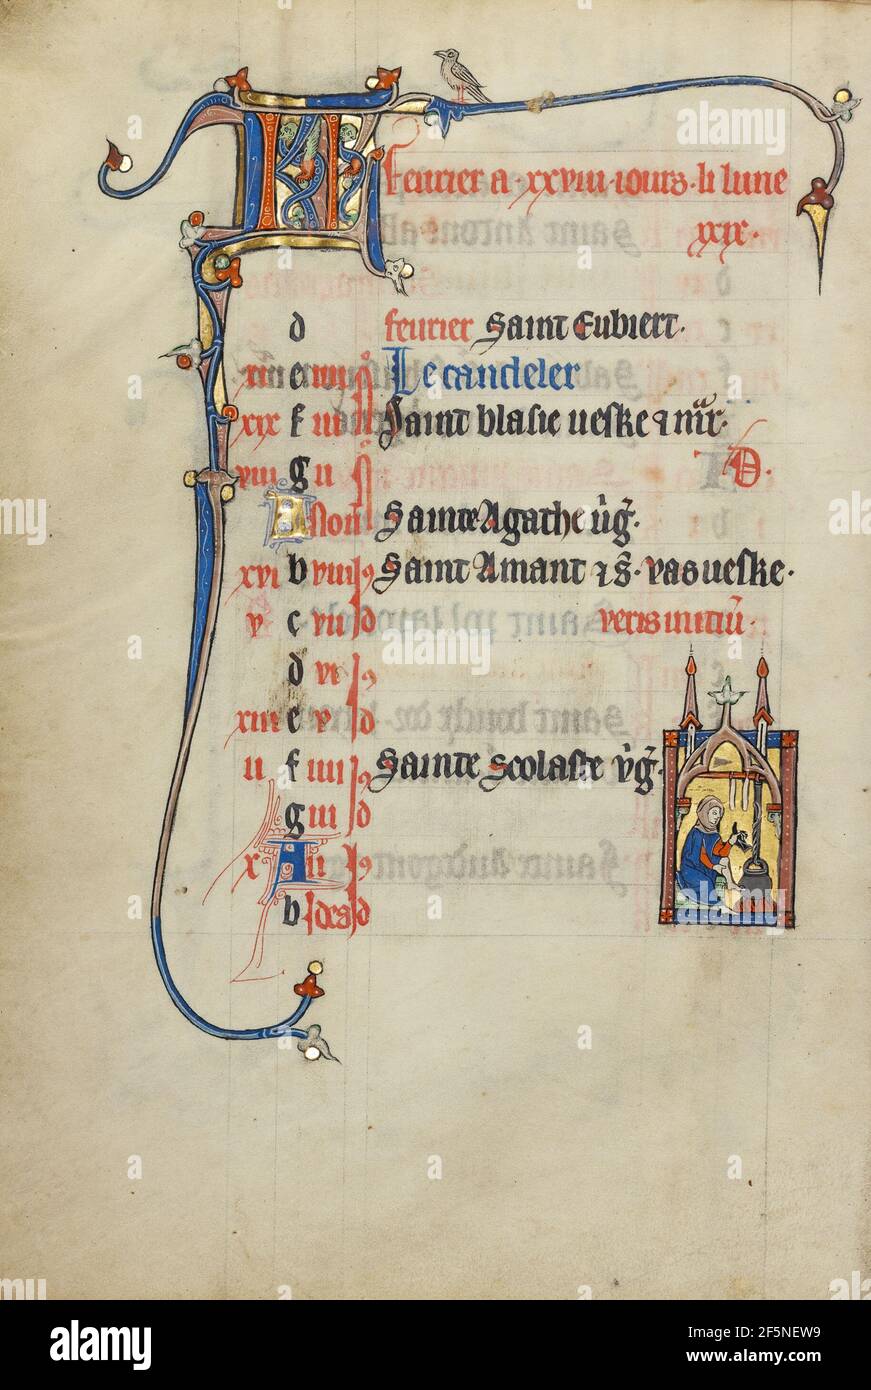 feurier a · xxviii · iours · li lune
xxix ·
d feurier Saint Eubiert ·
e iiii Le candeler
xix f iii Saint blasie ueske
viii g ii D ·
A non Sainte Agathe
xvi b viii Saint Amant vas ueske ·
v c vii d veris
d vi
xiii e v d
ii f iiii Sainte Scolaste
g iii d
x A ii
b idea d
alamy
Image ID: 2F5NEW9
www.alamy.com